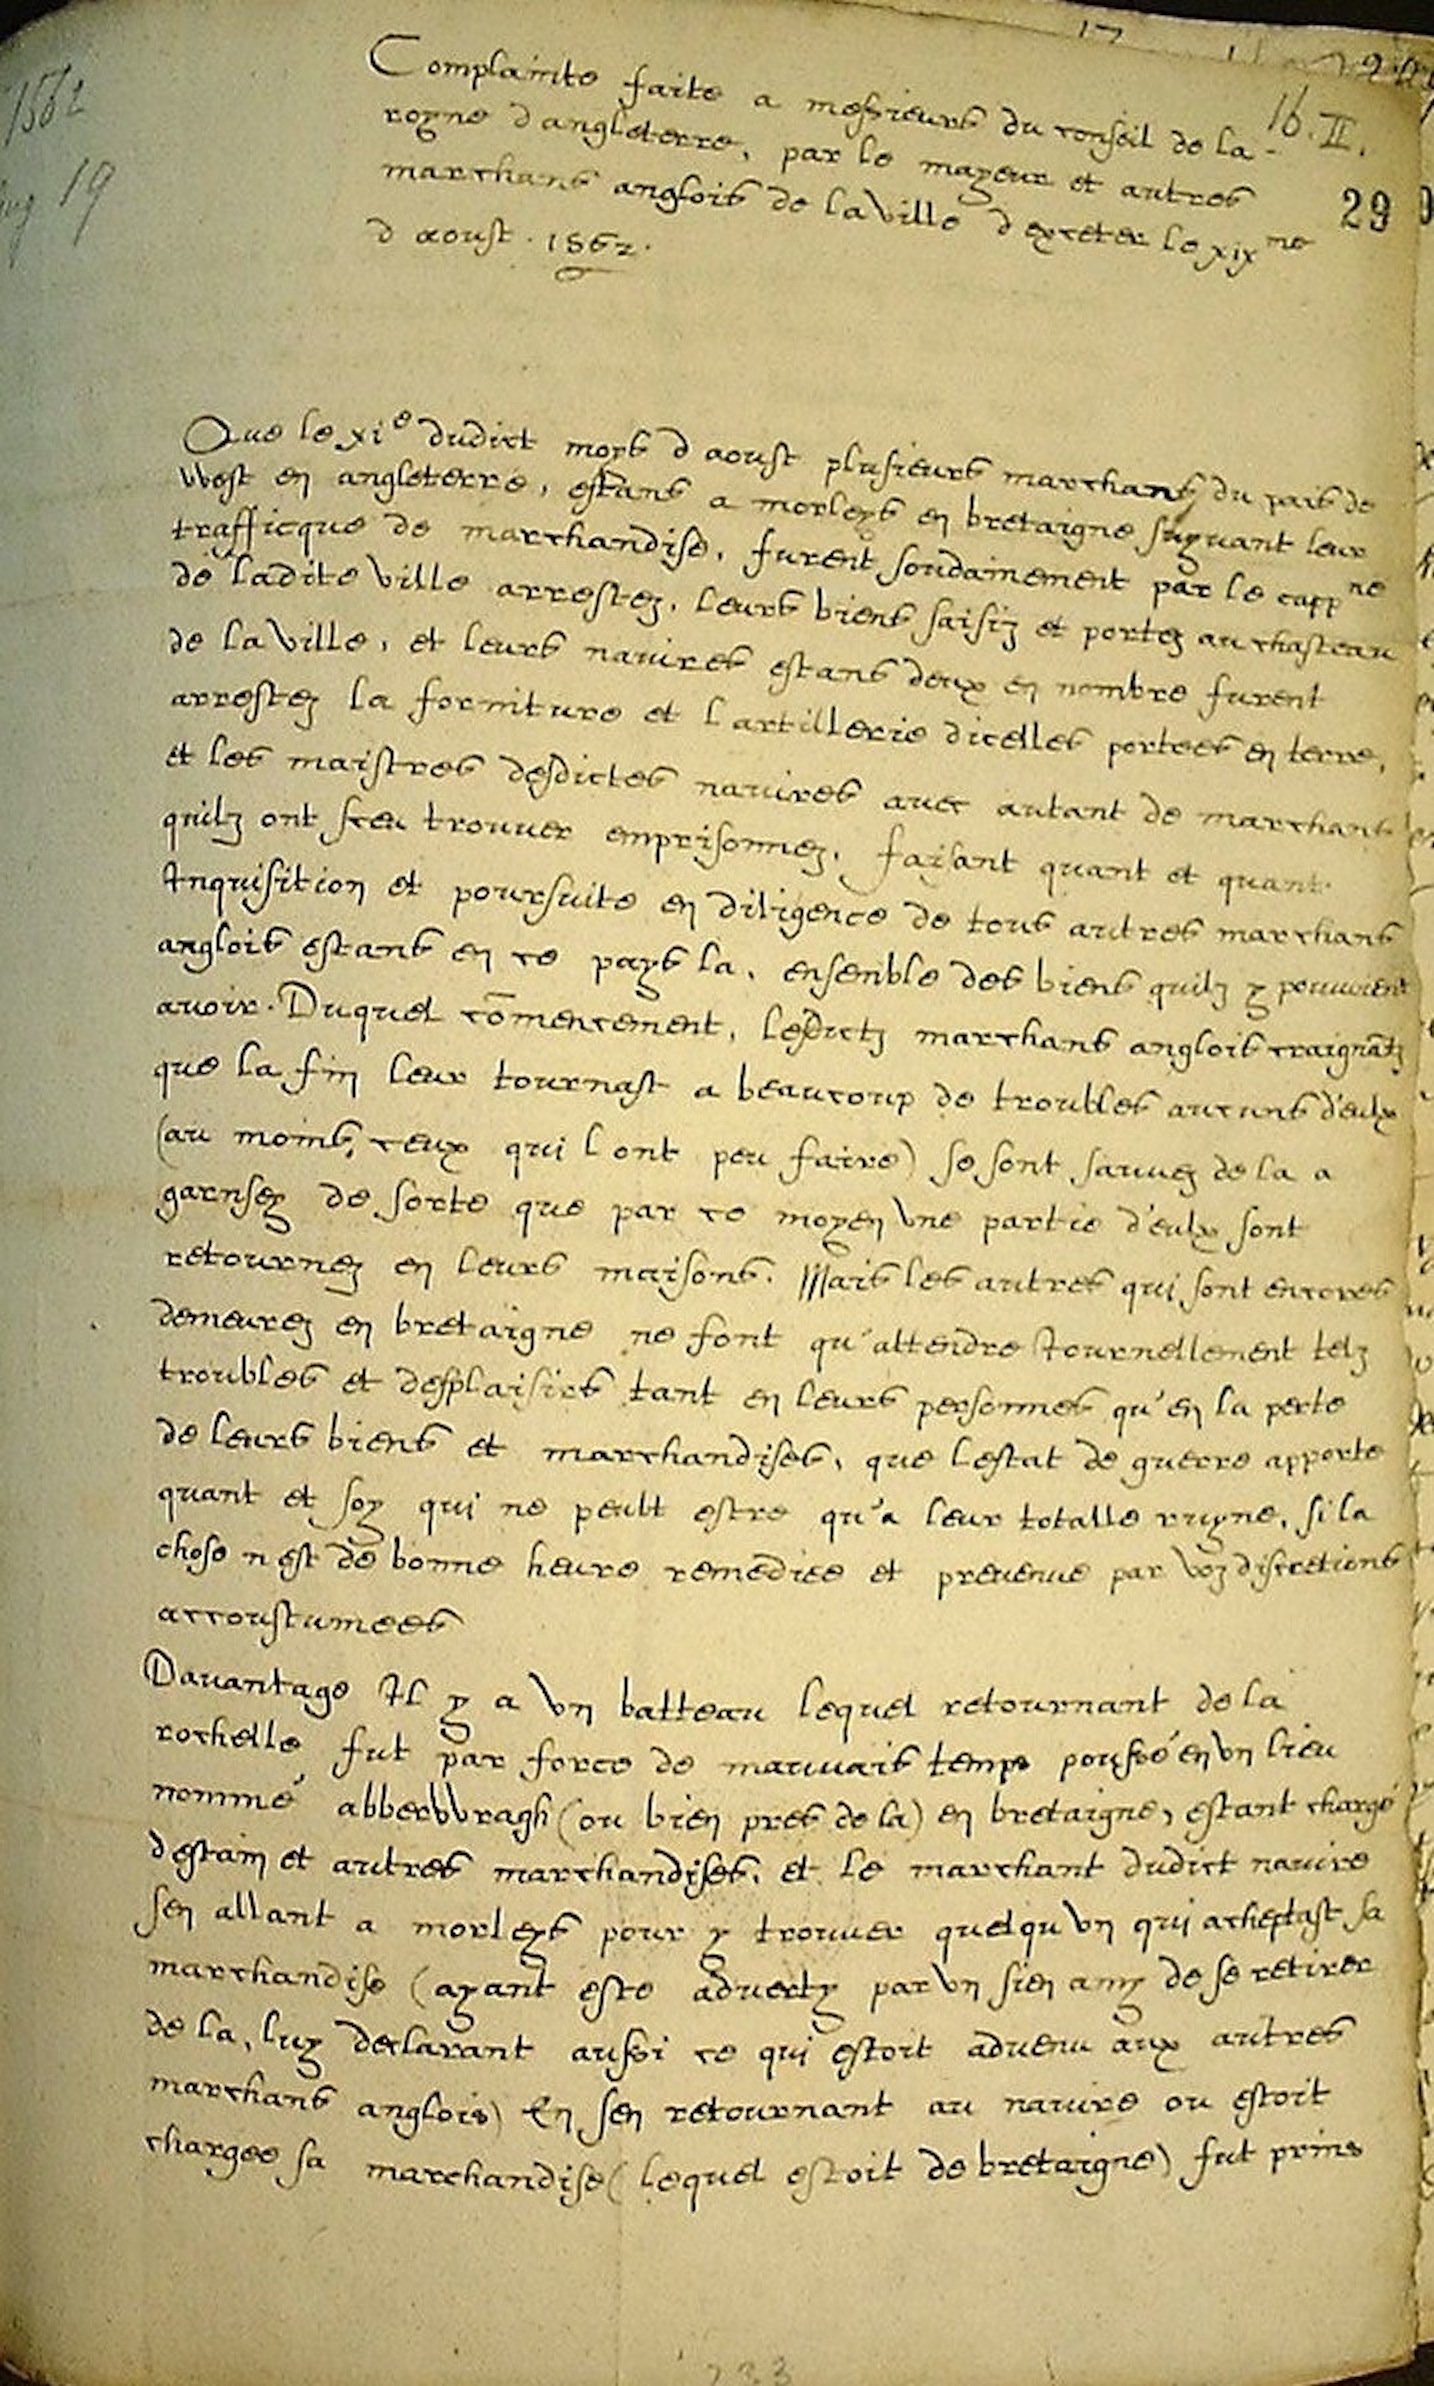 1562
Aug 19
17
16. II.
29
Complainte faite a messieurs du conseil de la
royne d angleterre, par le mayeur et autres
marchans anglois de la ville d exceter le xix me
d aoust. 1562.
Que le xi e dudict moys d aoust plusieurs marchans du pais de
West en angleterre, estans a morleys en bretaigne suyuant leur
trafficque de marchandise, furent soudainement par le capp ne
de ladite ville arrestez, leurs biens saisiz et portez au chasteau
de la ville, et leurs nauires estans deux en nombre furent
arrestez la forniture et l artillerie dicelles portees en terre,
et les maistres desdictes nauires auec autant de marchans
quilz ont sceu trouuer emprisonnez, faisant quant et quant
Inquisition et poursuite en diligence de tous autres marchans
anglois estans en ce pays la, ensenble des biens quilz y pouuoient
auoir. Duquel cõmencement, lesdictz marchans anglois craignãtz
que la fin leur tournast a beaucoup de troubles aucuns d'eulx
(au moins, ceux qui l ont peu faire) se sont sauuez de la a
garnsey de sorte que par ce moyen vne partie d'eulx sont
retournez en leurs maisons. Mais les autres qui sont encores
demeurez en bretaigne ne font qu'attendre Iournellement telz
troubles et desplaisirs tant en leurs personnes qu'en la perte
de leurs biens et marchandises, que lestat de guerre apporte
quant et soy qui ne peult estre qu'a leur totalle ruyne, si la
chose n est de bonne heure remediee et preuenue par voz discretions
accoustumees
Dauantage Il y a vn batteau lequel retournant de la
rochelle fut par force de mauuais temps poussé en vn lieu
nommé abberWragh (ou bien pres de la) en bretaigne, estant chargé
d estain et autres marchandises, et le marchant dudict nauire
sen allant a morleys pour y trouuer quelqu vn qui acheptast sa
marchandise (ayant este aduerty par vn sien amy de se retirer
de la, luy declarant aussi ce qui estoit aduenu aux autres
marchans anglois) En sen retournant au nauire ou estoit
chargee sa marchandise (lequel estoit de bretaigne) fut prins
233